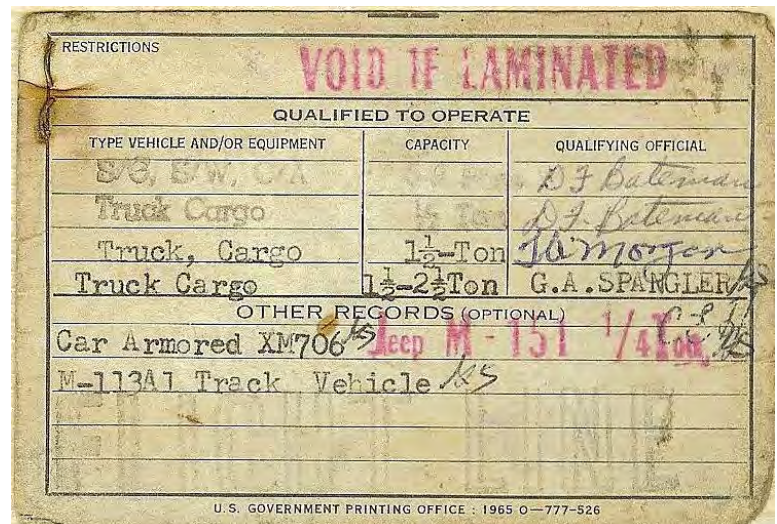 RESTRICTIONS
VOID IF LAMINATED
QUALIFIED TO OPERATE
TYPE VEHICLE AND/OR EQUIPMENT CAPACITY QUALIFYING OFFICIAL
S/S, S/W, C/A D F Bateman
Truck Cargo Ton D. F. Bateman
Truck, Cargo 1½-Ton Morgan
Truck Cargo 1½-2½Ton G.A.SPANGLER
OTHER RECORDS (OPTIONAL)
Car Armored XM706 Jeep M-151 1/4 Ton
M-113A1 Track Vehicle
U.S. GOVERNMENT PRINTING OFFICE : 1965 O—777-526